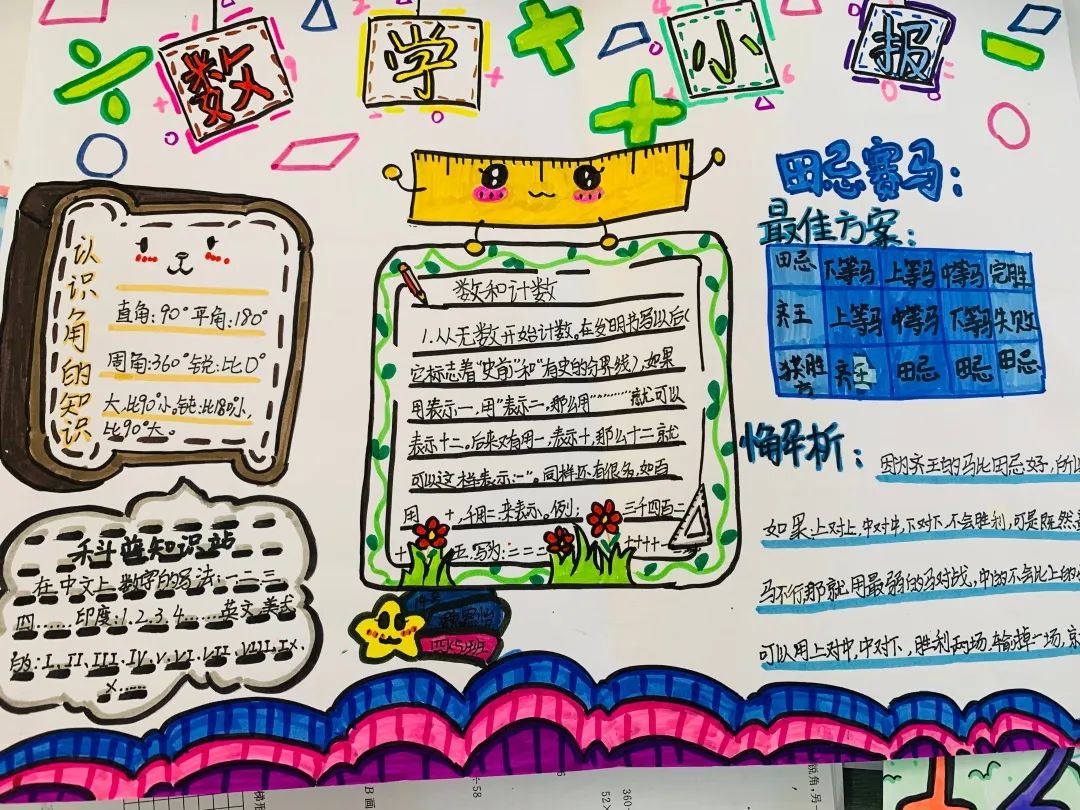 数学小报
认识角的知识
直角:90° 平角:180°
周角:360° 锐:比0°
大,比90°小。钝:比180°小,
比90°大。
科普知识站
在中文上数字的写法:一二三
四……印度:1.2.3.4……英文美式
的:I、II、III、IV、V、VI、VII、VIII、IX、
X……
数和计数
1.从无数开始计数。在发明书写以后(
它标志着“史前”和“有史的分界线),如果
用表示一,用"表示二,那么用""""""就可以
表示十二。后来又有用一,表示十,那么十二就
可以这样表示:一"。同样还有很多,如百
用 十,千用二来表示。例: 三千四百二
十 五,写为:二二二 十十十十
四(5)班
田忌赛马:
最佳方案:
田忌 下等马 上等马 中等马 完胜
齐王 上等马 中等马 下等马 失败
获胜方 齐王 田忌 田忌 田忌
解析:
因为齐王的马比田忌好,所以
如果,上对上,中对中,下对下,不会胜利,可是既然
马不行那就用最弱的马对战,中的不会比上的
可以用上对中,中对下,胜利两场,输掉一场,